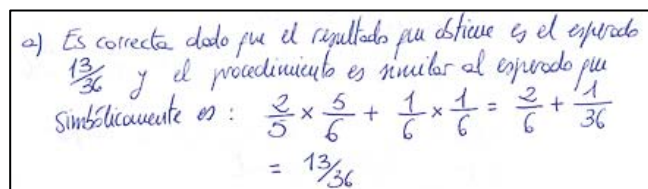 a) Es correcta dado que el resultado que obtiene es el esperado
13/36 y el procedimiento es similar al esperado que
simbólicamente es: 2/5 × 5/6 + 1/6 × 1/6 = 2/6 + 1/36
= 13/36